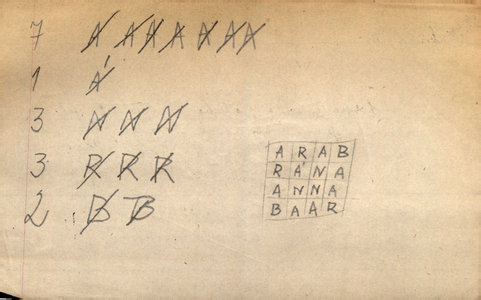 7 A A A A A A A
1 Á
3 N N N
3 R R R
2 B B
A R A B
R Á N A
A N N A
B A A R